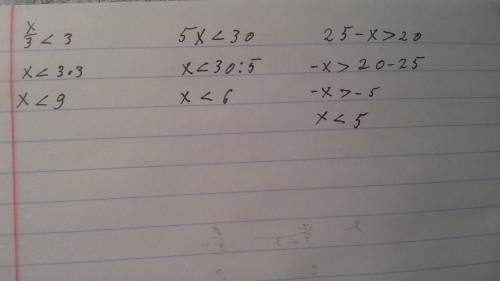 x/3 < 3
x < 3·3
x < 9
5x < 30
x < 30:5
x < 6
25-x > 20
-x > 20-25
-x > -5
x < 5